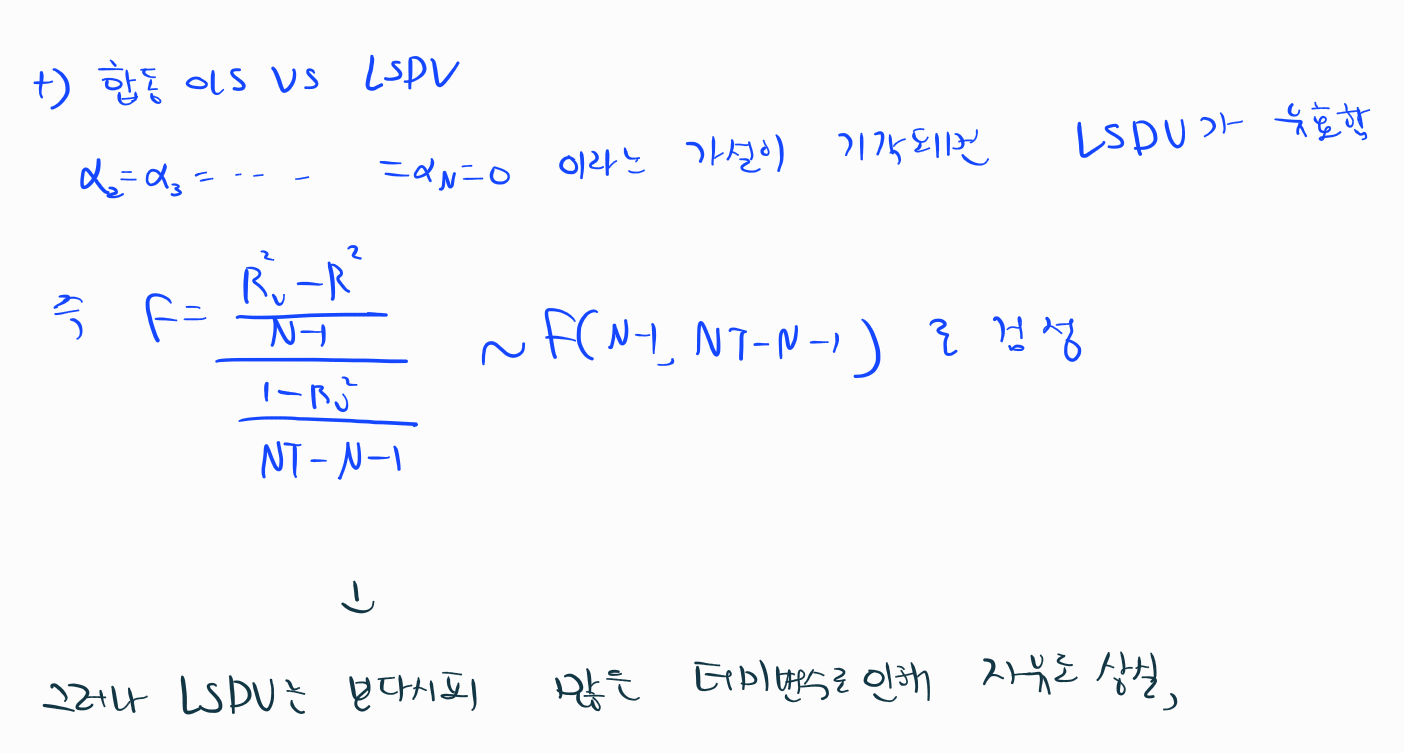 +) 합동 OLS VS LSDV
α₂=α₃= ---- =α_N=0 이라는 가설이 기각되면 LSDV가 유효함
즉 F= ((R_U²-R²)/(N-1))/((1-R_U²)/(NT-N-1)) ~ F(N-1, NT-N-1) 로 검정
그러나 LSDV는 보다시피 많은 더미변수로 인해 자유도 상실,